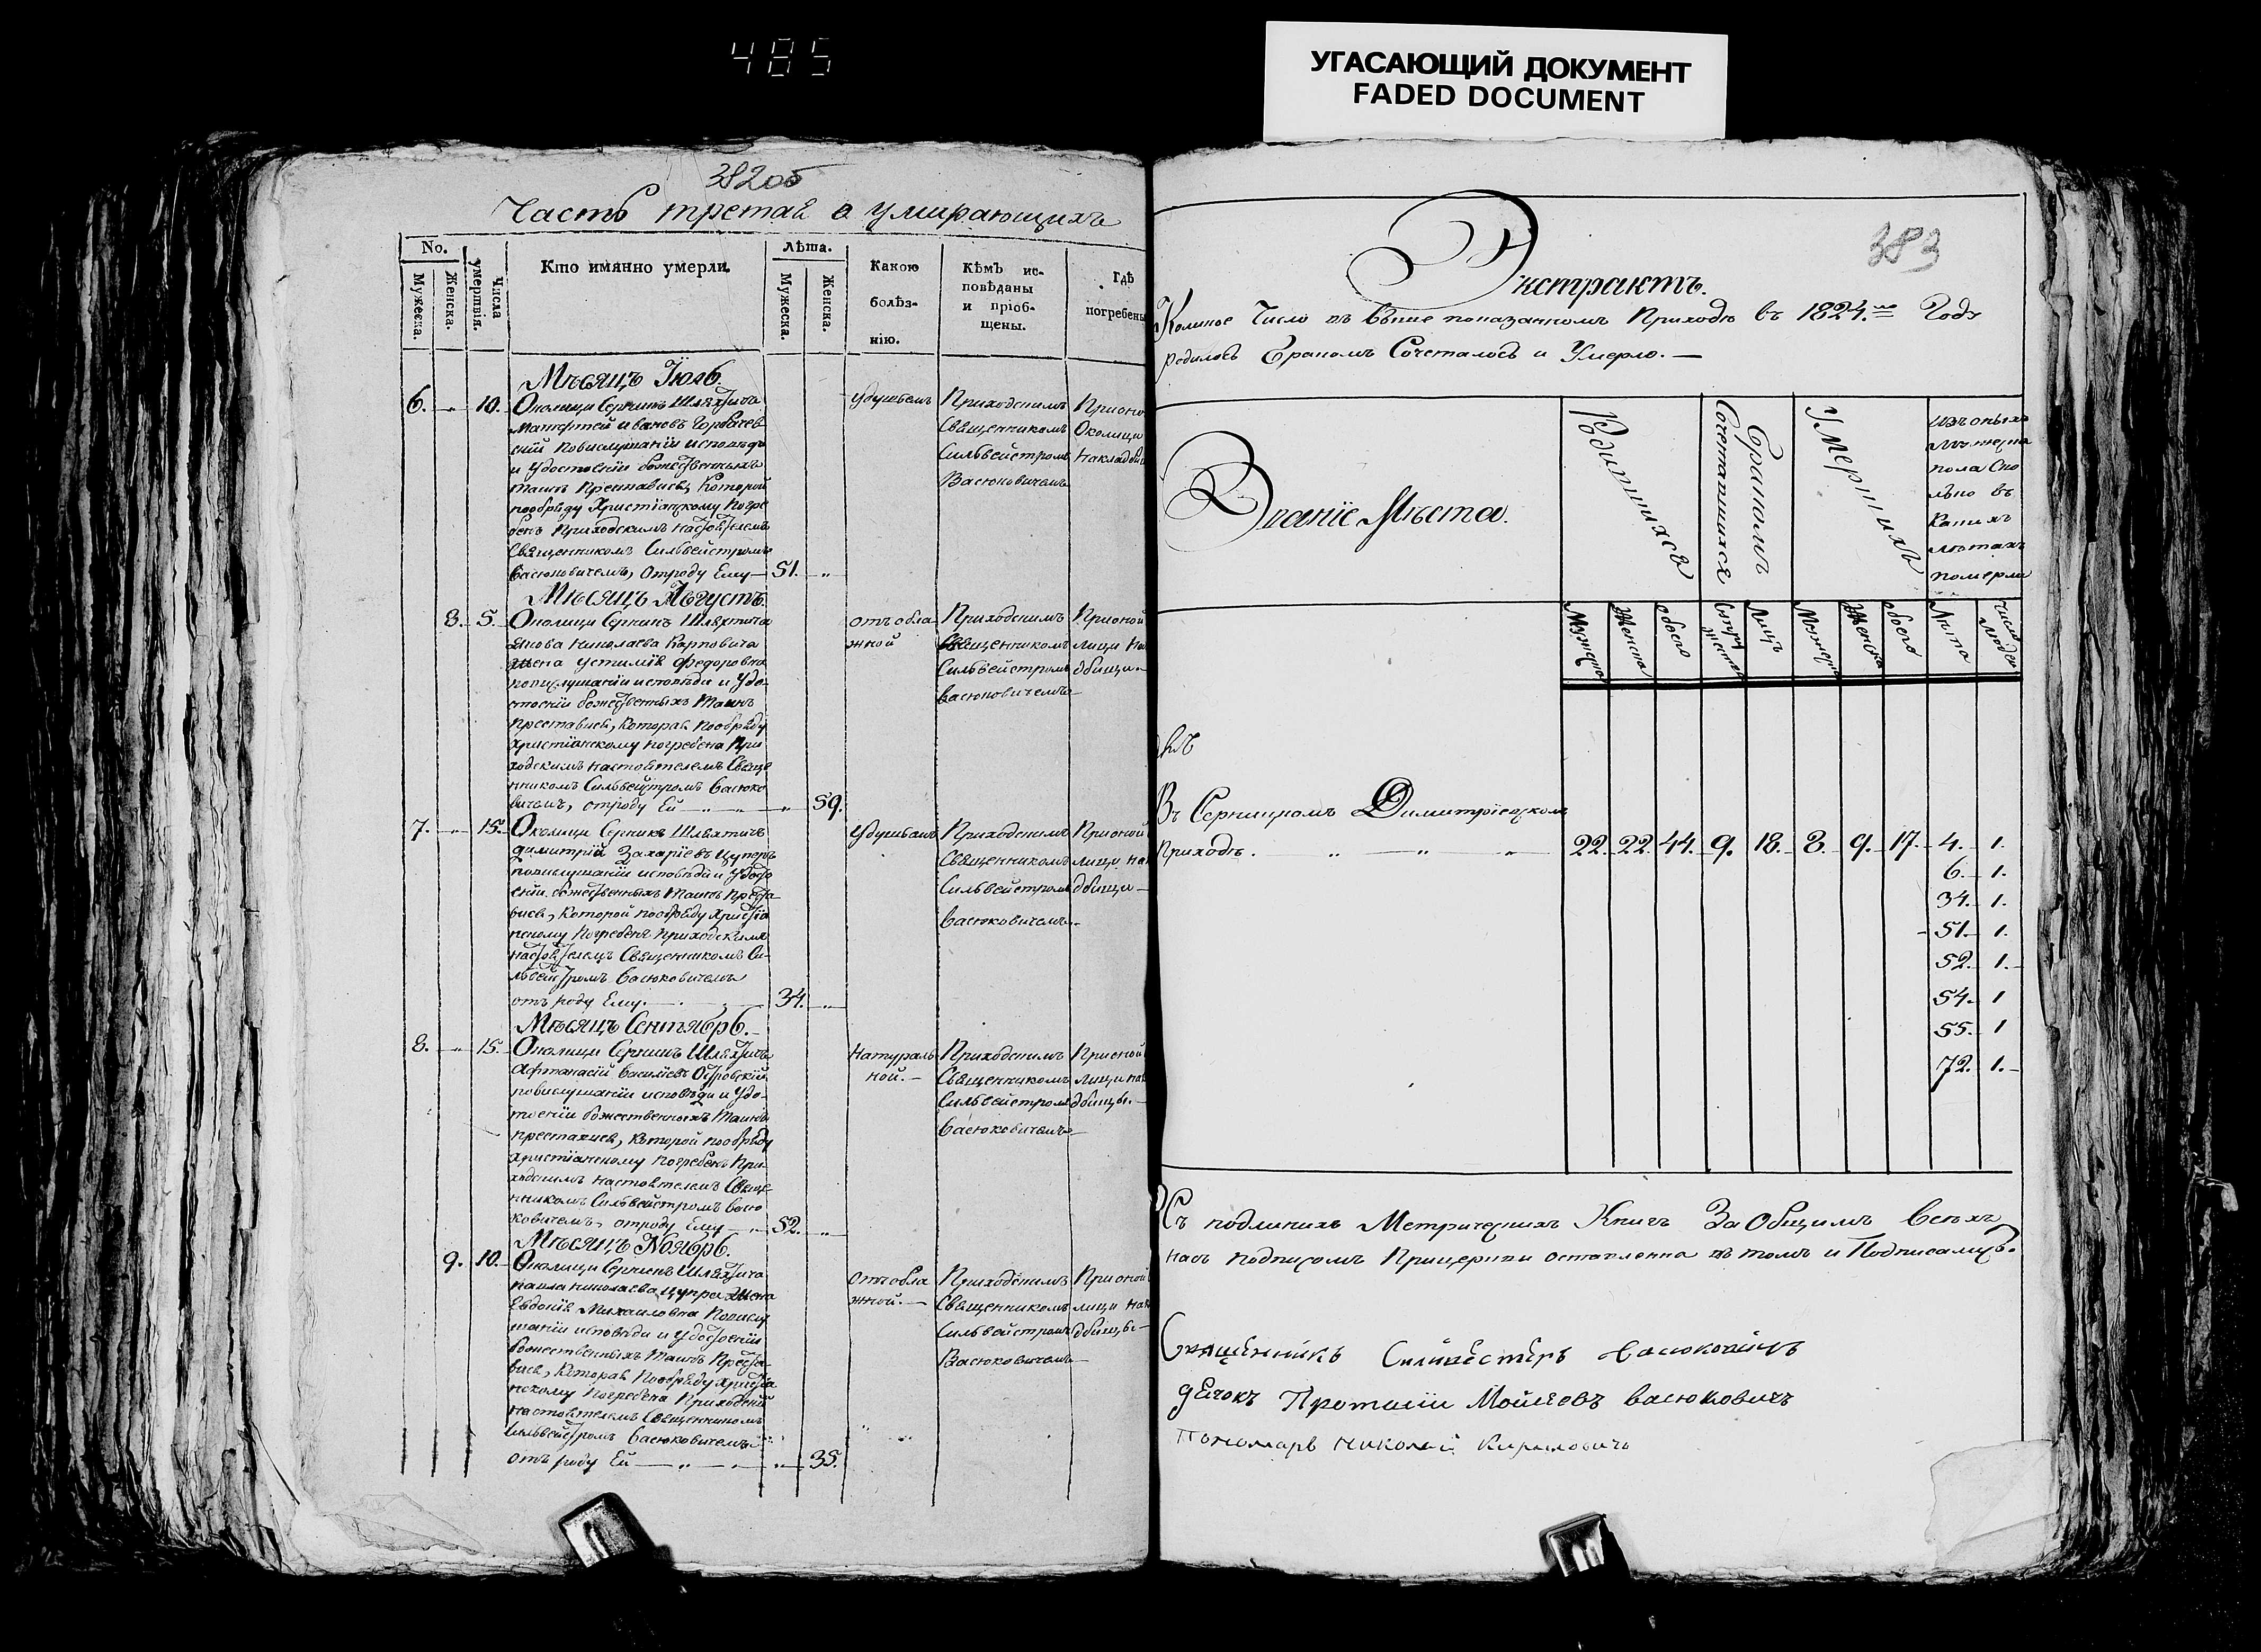 485
УГАСАЮЩИЙ ДОКУМЕНТ
FADED DOCUMENT
382об
Часть третая о умирающихъ
No.
Мужеска.
Женска.
Числа умертвія.
Кто имянно умерли.
Лѣта.
Мужеска.
Женска.
Какою болѣзнію.
Кѣмъ исповѣданы и пріобщены.
Гдѣ погребены
Мѣсяцъ Іюль.
6. „ 10. Околицы Серникъ Шляхтичъ
Матфтей Ивановъ Горбачев
скій повислушаніи исповѣди
и удостоеніи божественныхъ
таинъ преставися, которой
пообряду христіанскому погре
бенъ приходскимъ настоятелемъ
Священникомъ Сильвейстромъ
Васюковичемъ, отроду Ему — 51. „
удушьемъ
Приходскимъ
Священникомъ
Сильвейстромъ
Васюковичемъ
Прионо
Околицы
Накладби
Мѣсяцъ Августъ.
8. 5. Околицы Серникъ Шляхтича
Якова Николаева Карповича
жена Устимія Федоровна
повислушаніи исповѣди и удо-
стоеніи божественныхъ таинъ
преставися, которая пообряду
христіанскому погребена при
ходскимъ настоятелемъ Свяще
нникомъ Сильвейстромъ Васюко
вичемъ, отроду Ей — „ — „ 59.
отъ обла
жной
Приходскимъ
Священникомъ
Сильвейстромъ
Васюковичемъ
Прионой
лици На
дбищи
7. „ 15. Околицы Серникъ Шляхтичъ
Димитрій Захаріевъ Цуперъ
повислушаніи исповѣди и удосто
еніи божественныхъ таинъ преста
вися, которой пообряду христіа
нскому погребенъ приходскимъ
настоятелемъ Священникомъ Си-
львейстромъ Васюковичемъ
отъ роду Ему. — 34. „
удушьемъ
Приходскимъ
Священникомъ
Сильвейстромъ
Васюковичемъ
Прионой
лици на
дбищи
Мѣсяцъ Сентябрь.
8. „ 15. Околицы Серникъ Шляхтичъ
Афтанасій Васильевъ Островскій
повислушаніи исповѣди и удо-
тоеніи божественныхъ таинъ
преставися, которой пообряду
христіанскому погребенъ при-
ходскимъ настоятелемъ Свяще-
нникомъ Сильвейстромъ Васю
ковичемъ, отроду Ему — 52. „
натураль
ной. —
Приходскимъ
Священникомъ
Сильвейстромъ
Васюковичемъ
Прионой
лици на
дбищы. —
Мѣсяцъ Ноябрь.
9. 10. Околицы Серникъ Шляхтича
Павла Николаева Цупра жена
Евдокія Михаиловна повислу
шаніи исповѣди и удостоеніи
божественныхъ таинъ преста-
вися, которая пообряду христіа
нскому погребена приходскимъ
настоятелемъ Священникомъ
Сильвейстромъ Васюковичемъ
отъ роду Ей — „ — „ 35.
отъ обла
жной. —
Приходскимъ
Священникомъ
Сильвейстромъ
Васюковичемъ
Прионой
лици на
дбищы —
383
Экстрактъ.
Коликое Число въ выше показанномъ Приходѣ въ 1824.мъ Году
родилось Бракомъ Сочеталось и Умерло. —
Званіе Мѣста.
Родившихся
Бракомъ Сочетавшихся
Умершихъ
изъ оныхъ
мужеска
пола Ско
лько въ
Какихъ
лѣтахъ
померли
Мужеска
Женска
обоего
Супружествъ
Лицъ
Мужеска
Женска
обоего
Лѣта
число людей
Въ Серницкомъ Димитріевскомъ
Приходѣ. „ — „ — „ 22. 22. 44. 9. 18. 8. 9. 17. 4. 1.
6. 1.
34. 1.
51. 1.
52. 1.
54. 1
55. 1
72. 1.
Съ подлинихъ Метрическихъ Книгъ За Общимъ всехъ
насъ подписомъ Прицеркви оставленна въ томъ и Подписались.
Священникъ Силивестеръ Васюковичъ
дечокъ Протасіи Мойсеевъ васюковичъ
Пономарь Николай Кириловичъ